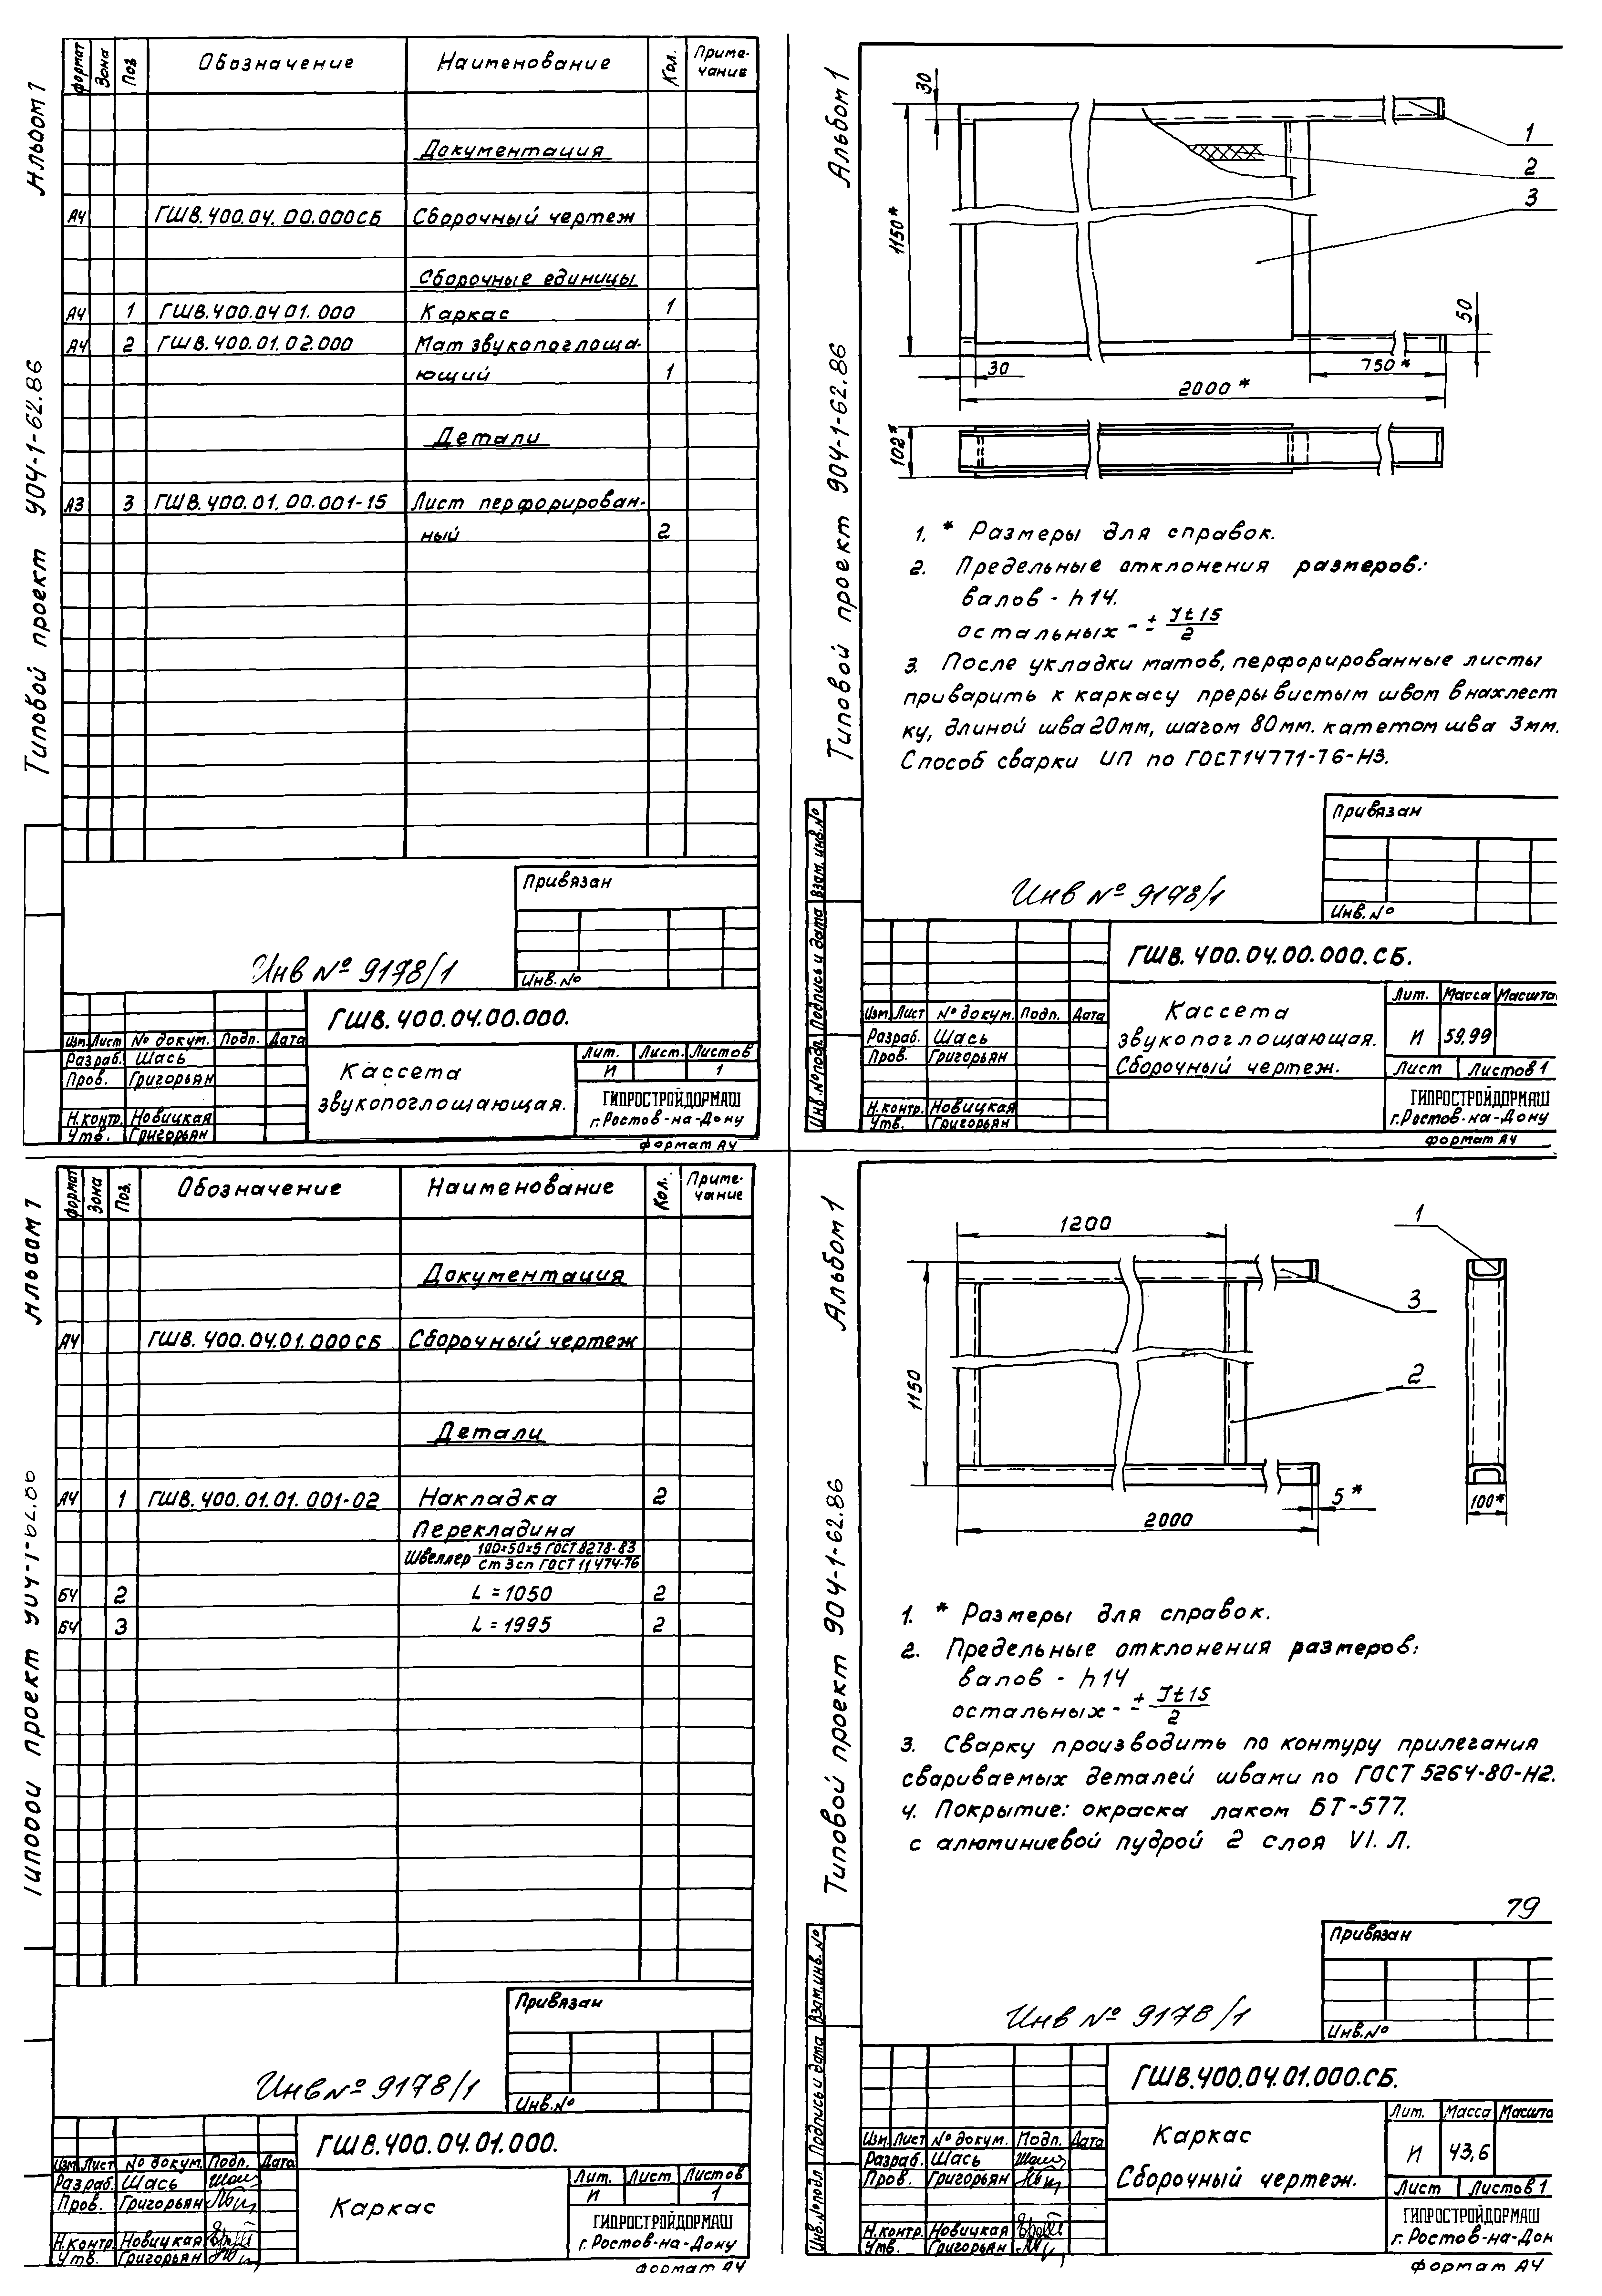 Альбом 1
Типовой проект 904-1-62.86
Формат Зона Поз Обозначение Наименование Кол. Приме-
чание
Документация
А4 ГШВ.400.04.00.000СБ Сборочный чертеж
Сборочные единицы
А4 1 ГШВ.400.04 01.000 Каркас 1
А4 2 ГШВ.400.01.02.000 Мат звукопоглоща-
ющий 1
Детали
А3 3 ГШВ.400.01.00.001-15 Лист перфорирован-
ный 2
Привязан
Инв.№
Инв № 9178/1
ГШВ.400.04.00.000.
Изм. Лист № докум. Подп. Дата
Разраб. Шась
Пров. Григорьян
Н.контр. Новицкая
Утв. Григорьян
Кассета
звукопоглощающая.
Лит. Лист. Листов
И 1
ГИПРОСТРОЙДОРМАШ
г.Ростов-на-Дону
формат А4
Альбом 1
Типовой проект 904-1-62.86
30
1
2
3
1150*
50
30
750*
2000*
102*
1. * Размеры для справок.
2. Предельные отклонения размеров:
валов - h14.
остальных - ± Jt15
2
3. После укладки матов, перфорированные листы
приварить к каркасу прерывистым швом внахлест
ку, длиной шва 20мм, шагом 80мм. катетом шва 3мм.
Способ сварки ИП по ГОСТ14771-76-Н3.
Привязан
Инв.№
Инв № 9178/1
Инв.№подл. Подпись и дата Взам.инв.№
ГШВ.400.04.00.000.СБ.
Изм. Лист № докум. Подп. Дата
Разраб. Шась
Пров. Григорьян
Н.контр. Новицкая
Утв. Григорьян
Кассета
звукопоглощающая.
Сборочный чертеж.
Лит. Масса Масшта
И 59,99
Лист Листов 1
ГИПРОСТРОЙДОРМАШ
г.Ростов-на-Дону
формат А4
Альбом 1
Типовой проект 904-1-62.86
Формат Зона Поз. Обозначение Наименование Кол. Приме-
чание
Документация
А4 ГШВ.400.04.01.000СБ Сборочный чертеж
Детали
А4 1 ГШВ.400.01.01.001-02 Накладка 2
Перекладина
Швеллер 100×50×5 ГОСТ 8278-83
Ст 3сп ГОСТ 11474-76
БЧ 2 L = 1050 2
БЧ 3 L = 1995 2
Привязан
Инв.№
Инв № 9178/1
ГШВ.400.04.01.000.
Изм Лист № докум. Подп. Дата
Разраб. Шась
Пров. Григорьян
Н.контр. Новицкая
Утв. Григорьян
Каркас
Лит. Лист Листов
И 1
ГИПРОСТРОЙДОРМАШ
г.Ростов-на-Дону
формат А4
Альбом 1
Типовой проект 904-1-62.86
1200
1
3
2
1150
5*
2000
100*
1. * Размеры для справок.
2. Предельные отклонения размеров:
валов - h14
остальных - ± Jt15
2
3. Сварку производить по контуру прилегания
свариваемых деталей швами по ГОСТ 5264-80-Н2.
4. Покрытие: окраска лаком БТ-577.
с алюминиевой пудрой 2 слоя VI. Л.
79
Привязан
Инв.№
Инв № 9178/1
Инв.№подл Подпись и дата Взам.инв.№
ГШВ.400.04.01.000.СБ.
Изм. Лист № докум. Подп. Дата
Разраб. Шась
Пров. Григорьян
Н.контр. Новицкая
Утв. Григорьян
Каркас
Сборочный чертеж.
Лит. Масса Масшта
И 43,6
Лист Листов 1
ГИПРОСТРОЙДОРМАШ
г.Ростов-на-Дон
формат А4